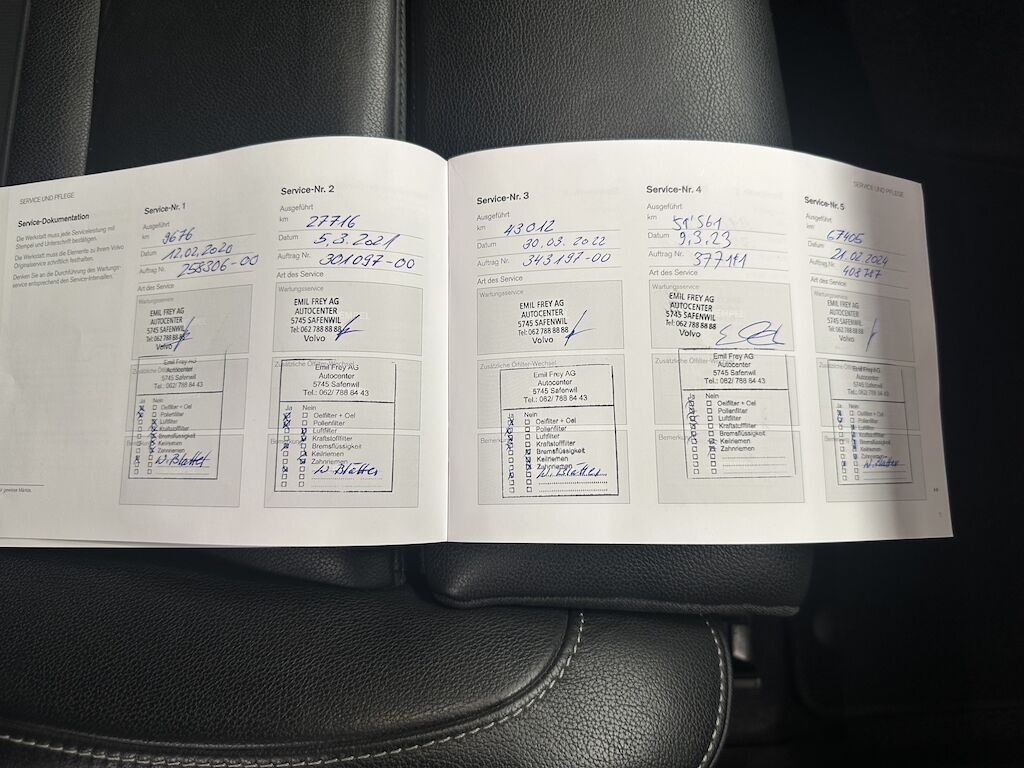 SERVICE UND PFLEGE
Service-Dokumentation
Die Werkstatt muss jede Serviceleistung mit
Stempel und Unterschrift bestätigen.
Die Werkstatt muss die Elemente zu Ihrem Volvo
Originalservice schriftlich festhalten.
Denken Sie an die Durchführung des Wartungs-
service entsprechend den Service-Intervallen.
Service-Nr. 1
Ausgeführt
km 9676
Datum 12.02.2020
Auftrag Nr. 258306-00
Art des Service
Wartungsservice
EMIL FREY AG
AUTOCENTER
5745 SAFENWIL
Tel: 062 788 88 88
Volvo
Emil Frey AG
Autocenter
5745 Safenwil
Tel.: 062/ 788 84 43
Ja Nein
Oelfilter + Oel
Pollenfilter
Luftfilter
Kraftstofffilter
Bremsflüssigkeit
Keilriemen
Zahnriemen
W. Blätter
Service-Nr. 2
Ausgeführt
km 27716
Datum 5.3.2021
Auftrag Nr. 301097-00
Art des Service
Wartungsservice
EMIL FREY AG
AUTOCENTER
5745 SAFENWIL
Tel: 062 788 88 88
Volvo
Zusätzliche Ölfilter-Wechsel
Emil Frey AG
Autocenter
5745 Safenwil
Tel.: 062/ 788 84 43
Ja Nein
Oelfilter + Oel
Pollenfilter
Luftfilter
Kraftstofffilter
Bremsflüssigkeit
Keilriemen
Zahnriemen
W. Blätter
Service-Nr. 3
Ausgeführt
km 43012
Datum 30.03.2022
Auftrag Nr. 343197-00
Art des Service
Wartungsservice
EMIL FREY AG
AUTOCENTER
5745 SAFENWIL
Tel: 062 788 88 88
Volvo
Zusätzliche Ölfilter-Wechsel
Emil Frey AG
Autocenter
5745 Safenwil
Tel.: 062/ 788 84 43
Ja Nein
Oelfilter + Oel
Pollenfilter
Luftfilter
Kraftstofffilter
Bremsflüssigkeit
Keilriemen
Zahnriemen
W. Blätter
Service-Nr. 4
Ausgeführt
km
Datum 9.3.23
Auftrag Nr.
Art des Service
Wartungsservice
EMIL FREY AG
AUTOCENTER
5745 SAFENWIL
Tel: 062 788 88 88
Volvo
Emil Frey AG
Autocenter
5745 Safenwil
Tel.: 062/ 788 84 43
Nein
Oelfilter + Oel
Pollenfilter
Luftfilter
Kraftstofffilter
Bremsflüssigkeit
Keilriemen
Zahnriemen
SERVICE UND PFLEGE
Service-Nr. 5
Ausgeführt
km 67405
Datum 21.02.2024
Auftrag Nr.
Art des Service
Wartungsservice
EMIL FREY AG
AUTOCENTER
5745 SAFENWIL
Tel: 062 788 88 88
Volvo
Emil Frey AG
Autocenter
5745 Safenwil
Tel.: 062/ 788 84 43
Ja Nein
Oelfilter + Oel
Pollenfilter
Luftfilter
Kraftstofffilter
Bremsflüssigkeit
Keilriemen
Zahnriemen
W. Blätter